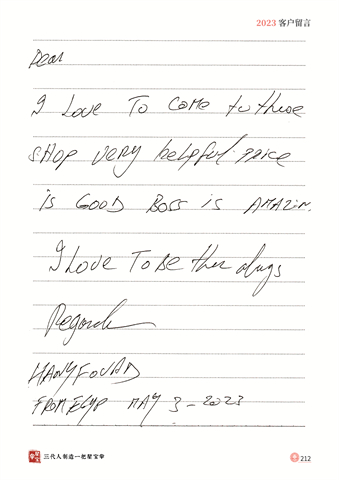 2023 客户留言
Dear
I Love To come to these
SHOP very helpful. price
is GOOD Boss is AMAZIN.
I Love To Be ther
Regards
HANY FOUAD
FROM EGYP MAY 3-2023
三代人制造一把紫宝壶
212